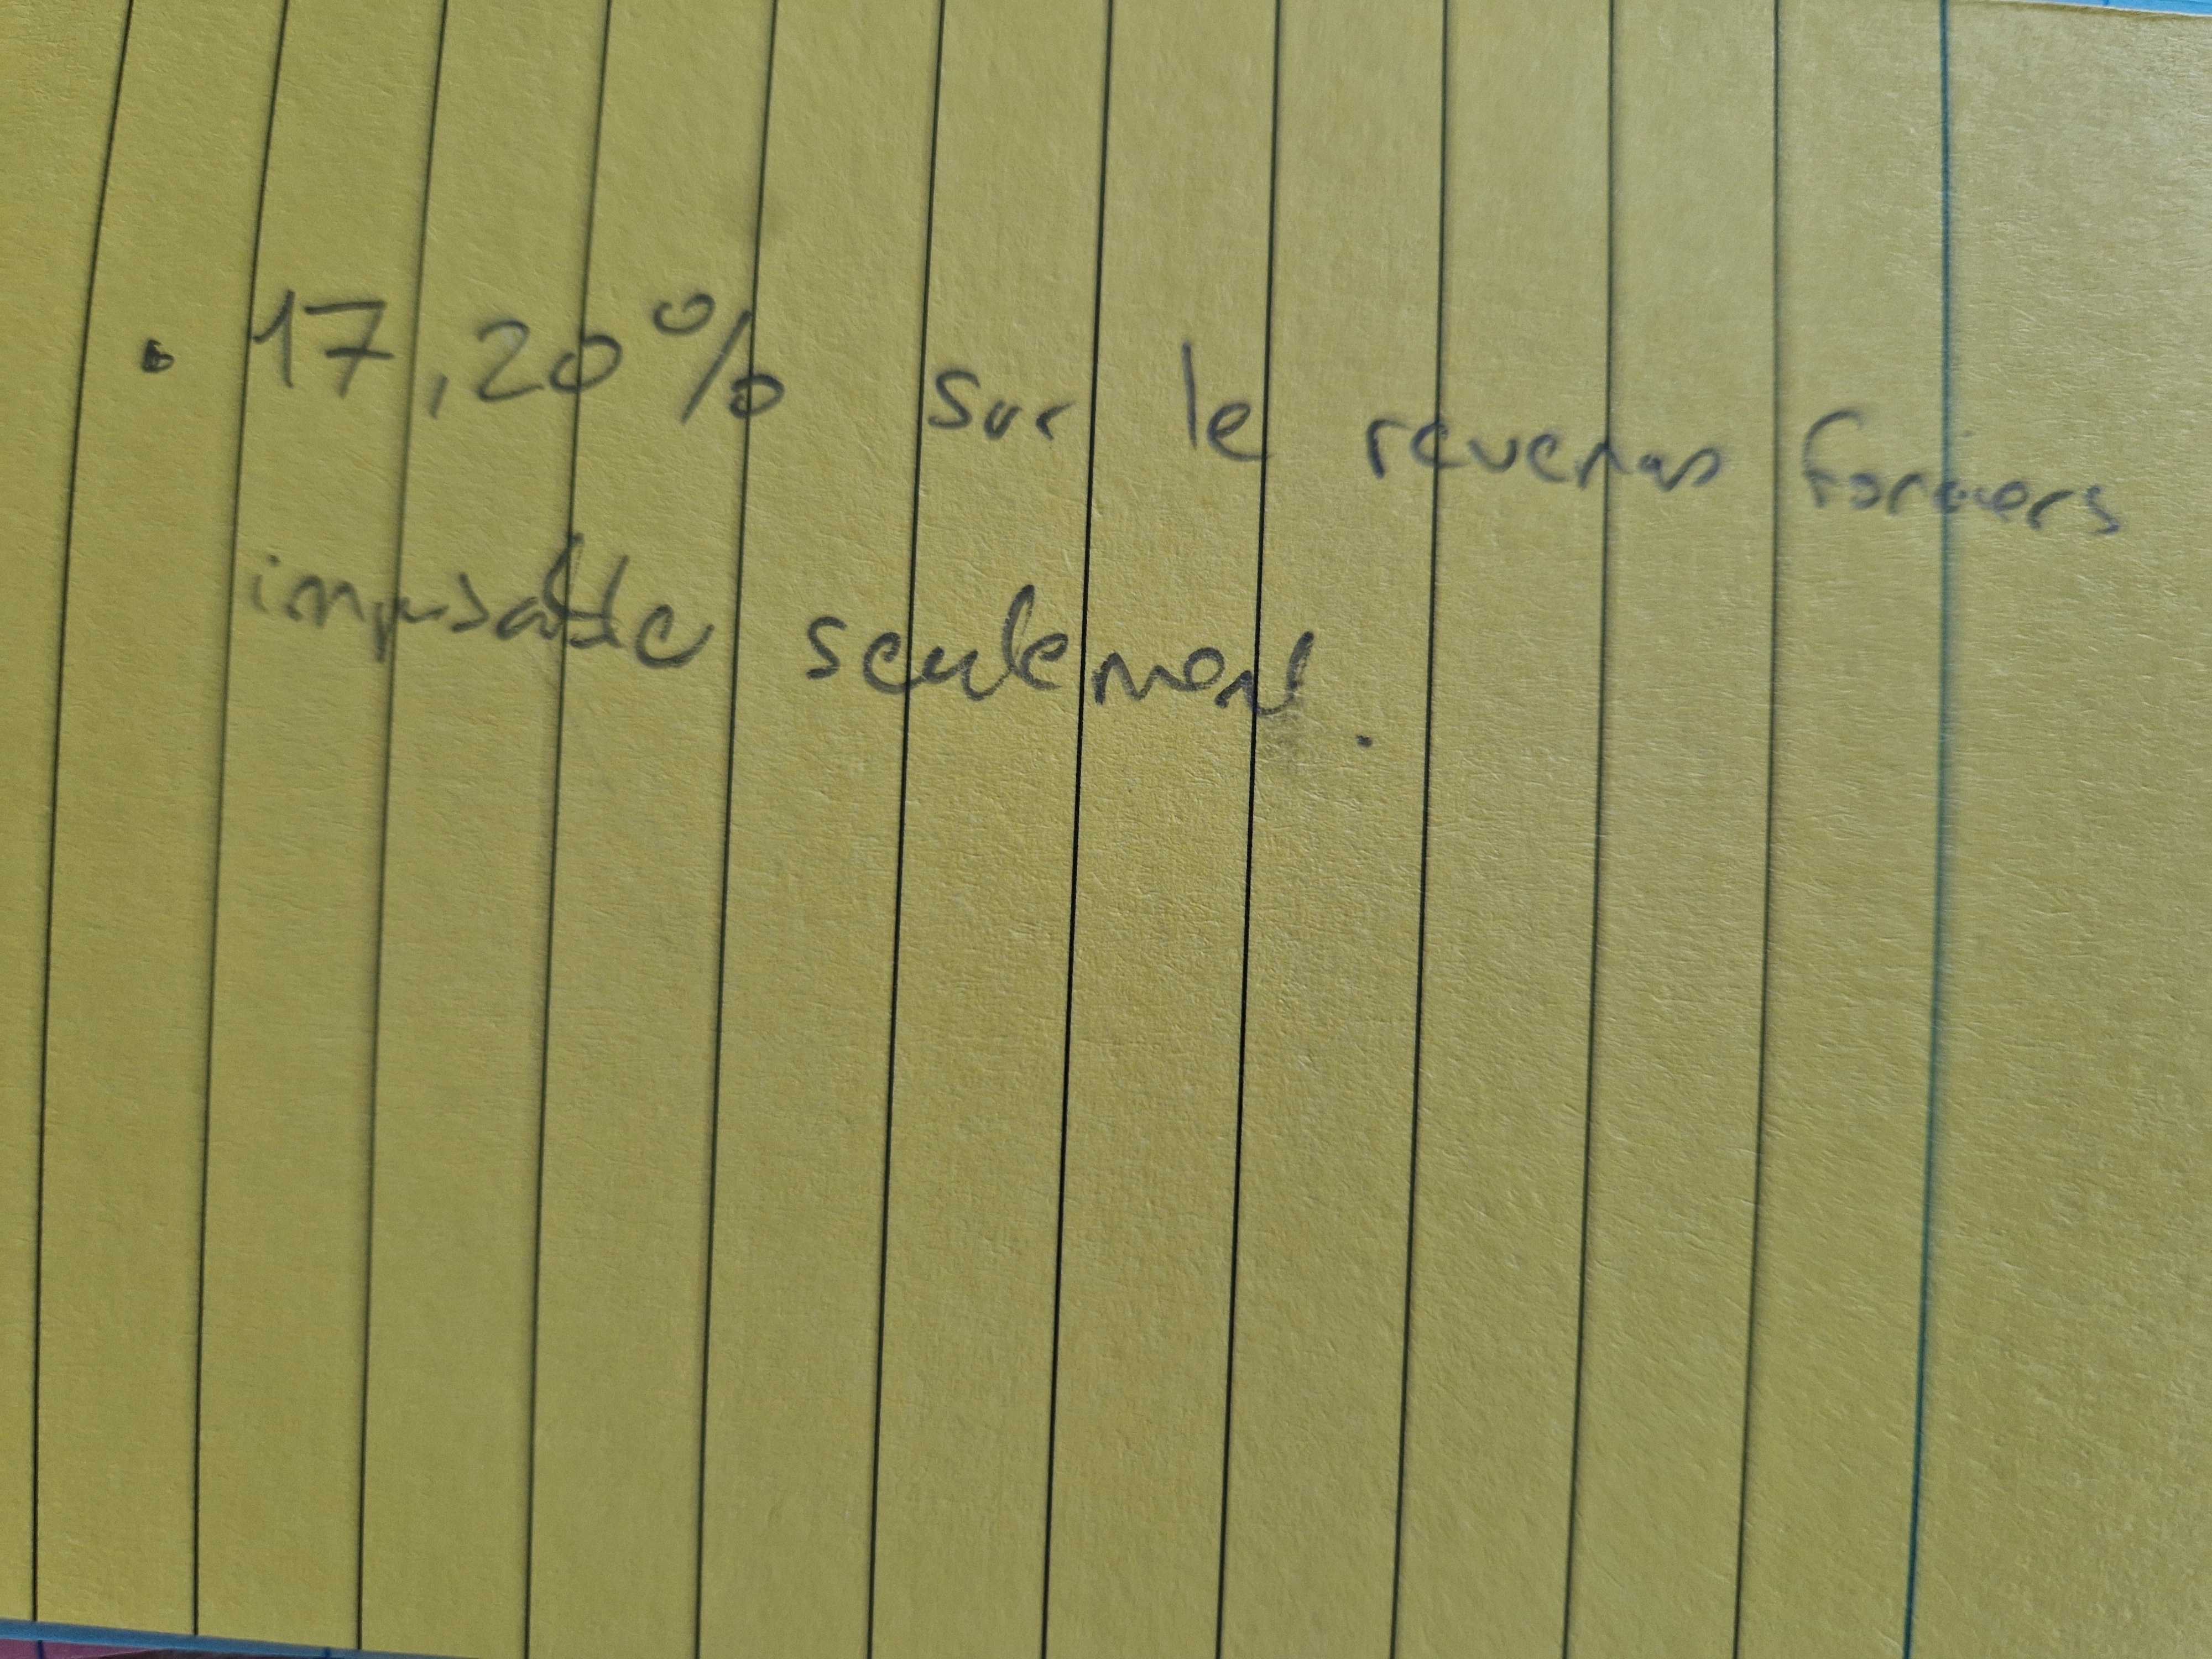 • 17,20% sur le revenus fonciers
imposable seulement.